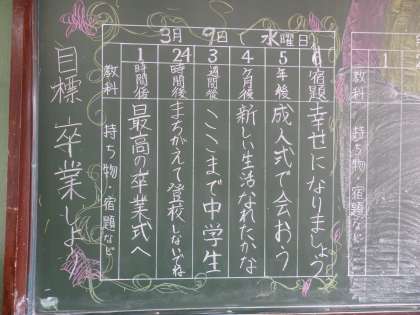 3月 9日 水曜日
目標 卒業しよう
教科 持ち物・宿題など
1時間後 最高の卒業式へ
24時間後 まちがえて登校しないでね
3週間後 ここまで中学生
4ヶ月後 新しい生活なれたかな
5年後 成人式で会おう
6 宿題 幸せになりましょう
1
教科 持ち物・宿題など